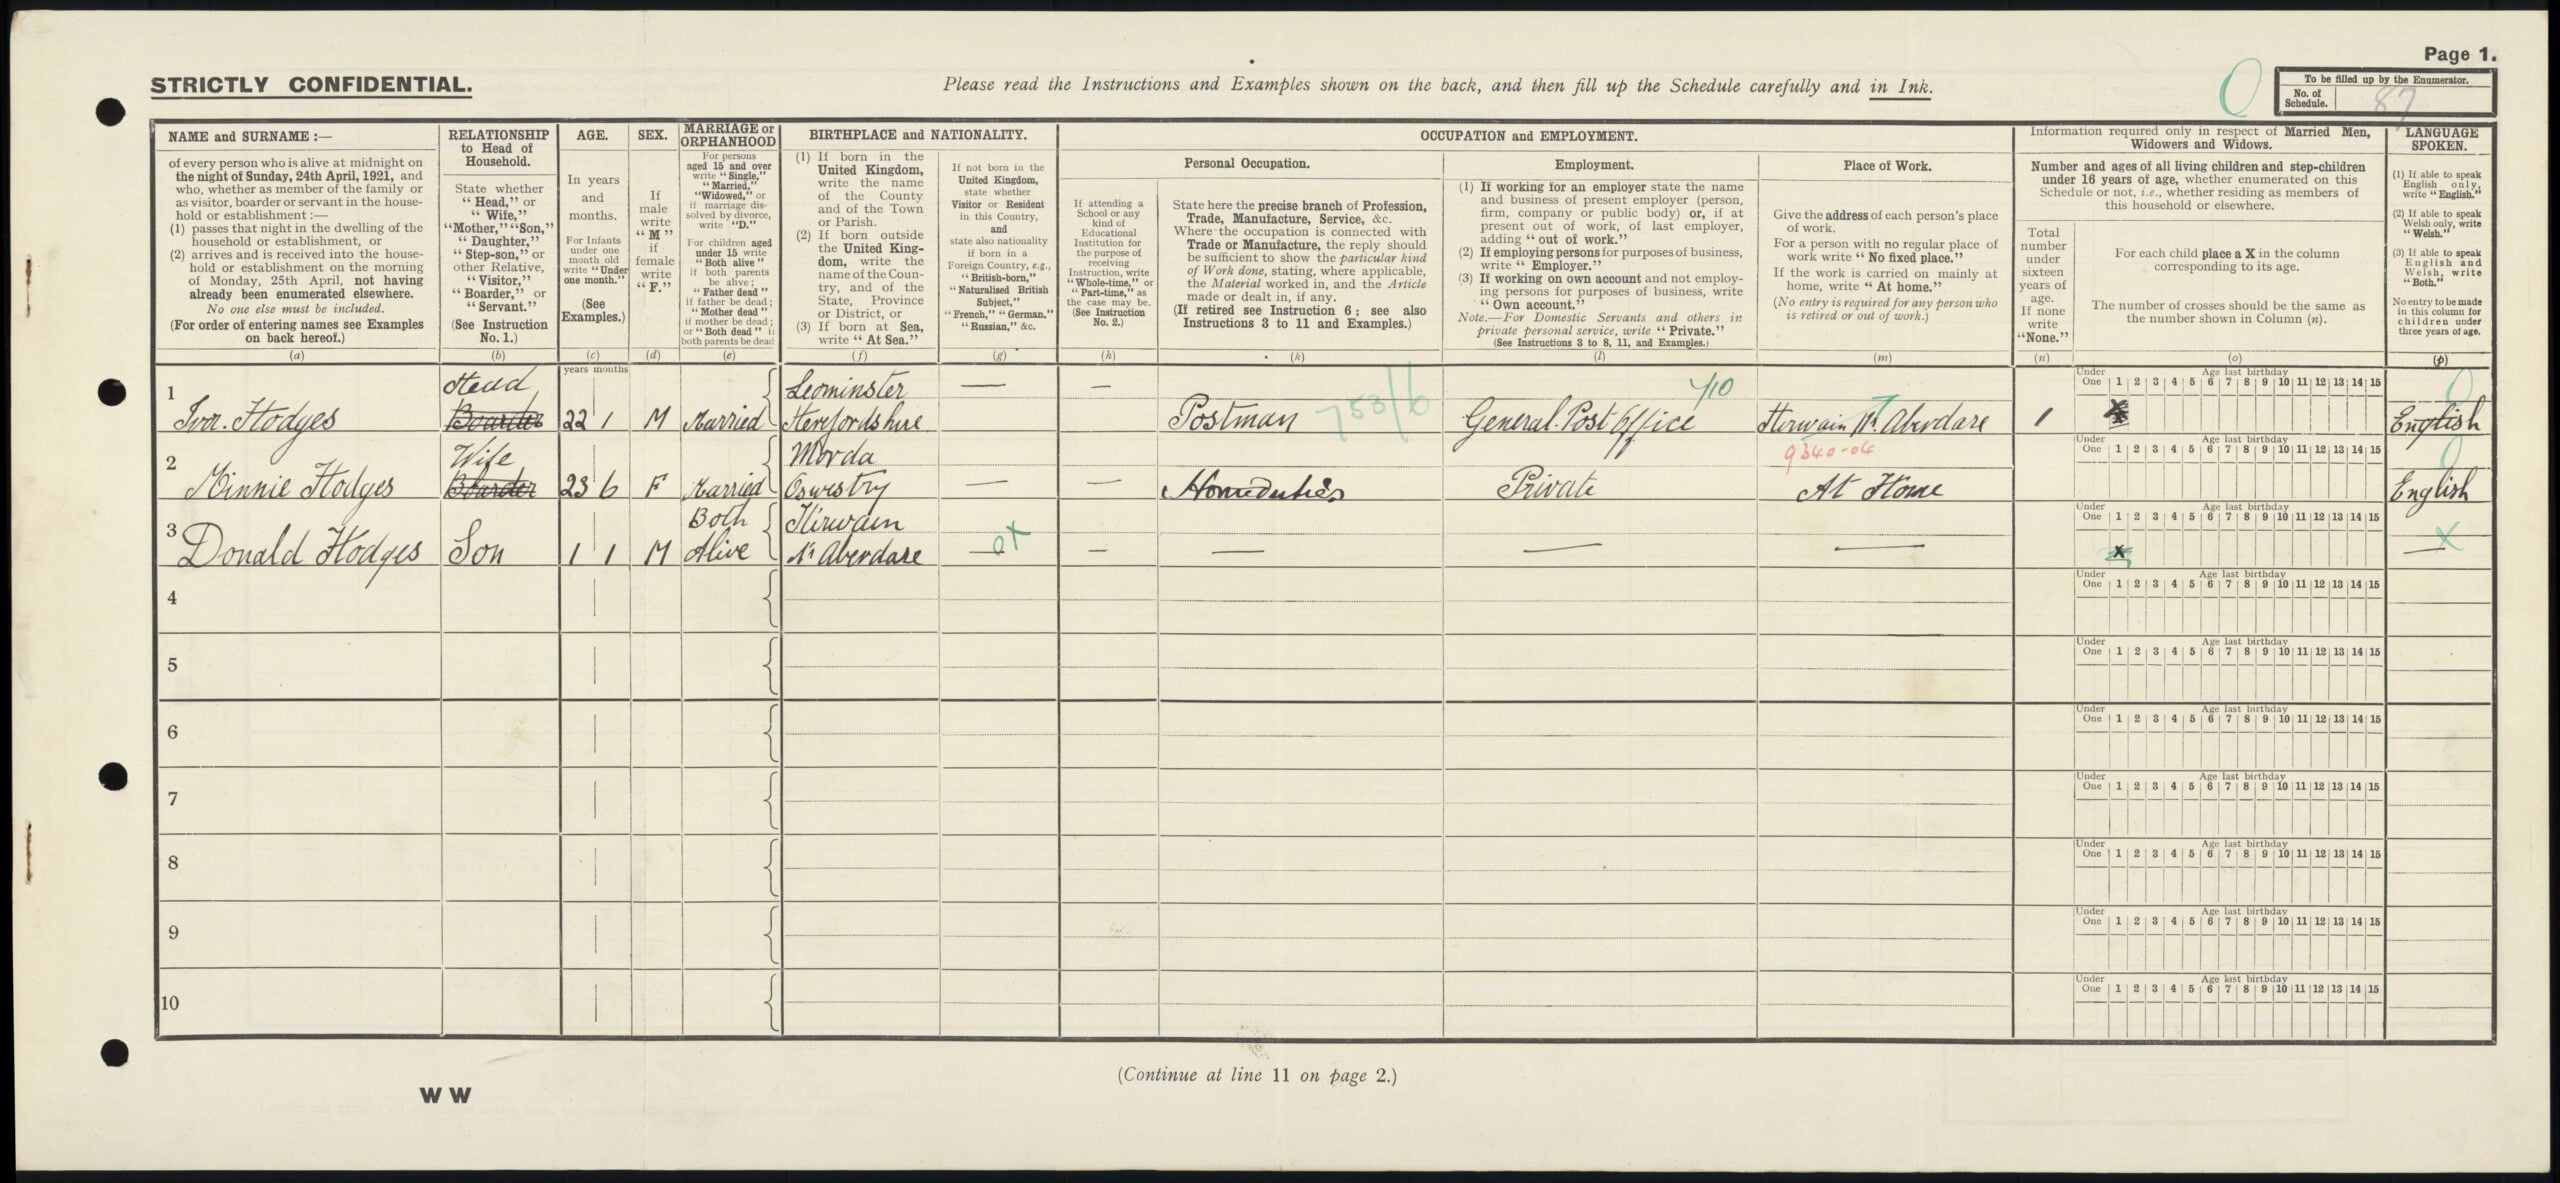 Page 1.
STRICTLY CONFIDENTIAL.
Please read the Instructions and Examples shown on the back, and then fill up the Schedule carefully and in Ink.
To be filled up by the Enumerator.
No. of
Schedule.
87
NAME and SURNAME :—
of every person who is alive at midnight on
the night of Sunday, 24th April, 1921, and
who, whether as member of the family or
as visitor, boarder or servant in the house-
hold or establishment :—
(1) passes that night in the dwelling of the
household or establishment, or
(2) arrives and is received into the house-
hold or establishment on the morning
of Monday, 25th April, not having
already been enumerated elsewhere.
No one else must be included.
(For order of entering names see Examples
on back hereof.)
(a)
RELATIONSHIP
to Head of
Household.
State whether
“Head,” or
“Wife,”
“Mother,” “Son,”
“Daughter,”
“Step-son,” or
other Relative,
“Visitor,”
“Boarder,” or
“Servant.”
(See Instruction
No. 1.)
(b)
AGE.
In years
and
months.
For Infants
under one
month old
write “Under
one month.”
(See
Examples.)
(c)
SEX.
If
male
write
“M”
if
female
write
“F.”
(d)
MARRIAGE or
ORPHANHOOD
For persons
aged 15 and over
write “Single,”
“Married,”
“Widowed,” or
if marriage dis-
solved by divorce,
write “D.”
For children aged
under 15 write
“Both alive”
if both parents
be alive;
“Father dead”
if father be dead;
“Mother dead”
if mother be dead;
or “Both dead” if
both parents be dead
(e)
BIRTHPLACE and NATIONALITY.
(1) If born in the
United Kingdom,
write the name
of the County
and of the Town
or Parish.
(2) If born outside
the United King-
dom, write the
name of the Coun-
try, and of the
State, Province
or District, or
(3) If born at Sea,
write “At Sea.”
(f)
If not born in the
United Kingdom,
state whether
Visitor or Resident
in this Country,
and
state also nationality
if born in a
Foreign Country, e.g.,
“British-born,”
“Naturalised British
Subject,”
“French,” “German,”
“Russian,” &c.
(g)
OCCUPATION and EMPLOYMENT.
If attending a
School or any
kind of
Educational
Institution for
the purpose of
receiving
Instruction, write
“Whole-time,” or
“Part-time,” as
the case may be.
(See Instruction
No. 2.)
(h)
Personal Occupation.
State here the precise branch of Profession,
Trade, Manufacture, Service, &c.
Where the occupation is connected with
Trade or Manufacture, the reply should
be sufficient to show the particular kind
of Work done, stating, where applicable,
the Material worked in, and the Article
made or dealt in, if any.
(If retired see Instruction 6; see also
Instructions 3 to 11 and Examples.)
(k)
Employment.
(1) If working for an employer state the name
and business of present employer (person,
firm, company or public body) or, if at
present out of work, of last employer,
adding “out of work.”
(2) If employing persons for purposes of business,
write “Employer.”
(3) If working on own account and not employ-
ing persons for purposes of business, write
“Own account.”
Note.—For Domestic Servants and others in
private personal service, write “Private.”
(See Instructions 3 to 8, 11, and Examples.)
(l)
Place of Work.
Give the address of each person's place
of work.
For a person with no regular place of
work write “No fixed place.”
If the work is carried on mainly at
home, write “At home.”
(No entry is required for any person who
is retired or out of work.)
(m)
Information required only in respect of Married Men,
Widowers and Widows.
Number and ages of all living children and step-children
under 16 years of age, whether enumerated on this
Schedule or not, i.e., whether residing as members of
this household or elsewhere.
Total
number
under
sixteen
years of
age.
If none
write
“None.”
(n)
For each child place a X in the column
corresponding to its age.
The number of crosses should be the same as
the number shown in Column (n).
(o)
LANGUAGE
SPOKEN.
(1) If able to speak
English only,
write “English.”
(2) If able to speak
Welsh only, write
“Welsh.”
(3) If able to speak
English and
Welsh, write
“Both.”
No entry to be made
in this column for
children under
three years of age.
(p)
years months
1
Head
Leominster
— —
Under One Age last birthday
1 2 3 4 5 6 7 8 9 10 11 12 13 14 15
Ivor. Hodges Boarder 22 1 M Married Herefordshire Postman 753/6 General Post Office 7/10 Hirwain Nr. Aberdare 1 X English
2
Wife
Morda
9340-04
Under One Age last birthday
1 2 3 4 5 6 7 8 9 10 11 12 13 14 15
Minnie Hodges Boarder 23 6 F Married Oswestry — — Home duties Private At Home English
3
Both
Hirwain
Under One Age last birthday
1 2 3 4 5 6 7 8 9 10 11 12 13 14 15
Donald Hodges Son 1 1 M Alive Nr Aberdare — — — — — X —
4
Under One Age last birthday
1 2 3 4 5 6 7 8 9 10 11 12 13 14 15
5
Under One Age last birthday
1 2 3 4 5 6 7 8 9 10 11 12 13 14 15
6
Under One Age last birthday
1 2 3 4 5 6 7 8 9 10 11 12 13 14 15
7
Under One Age last birthday
1 2 3 4 5 6 7 8 9 10 11 12 13 14 15
8
Under One Age last birthday
1 2 3 4 5 6 7 8 9 10 11 12 13 14 15
9
Under One Age last birthday
1 2 3 4 5 6 7 8 9 10 11 12 13 14 15
10
Under One Age last birthday
1 2 3 4 5 6 7 8 9 10 11 12 13 14 15
(Continue at line 11 on page 2.)
W W